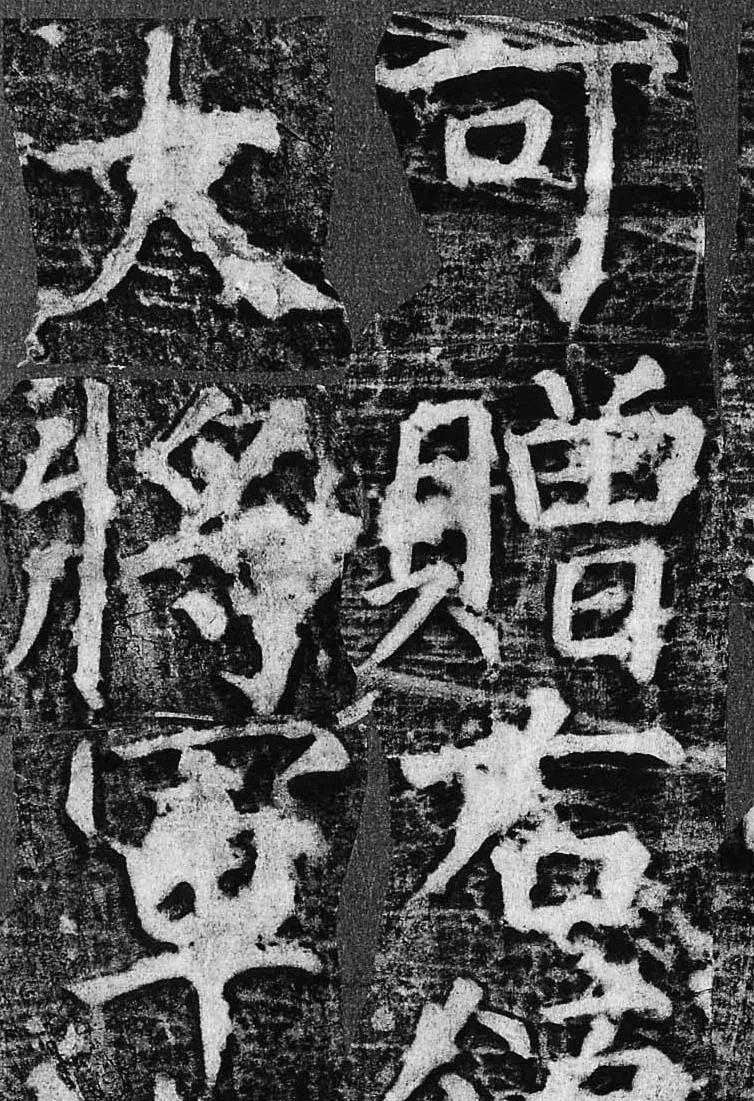 可贈右
大將軍